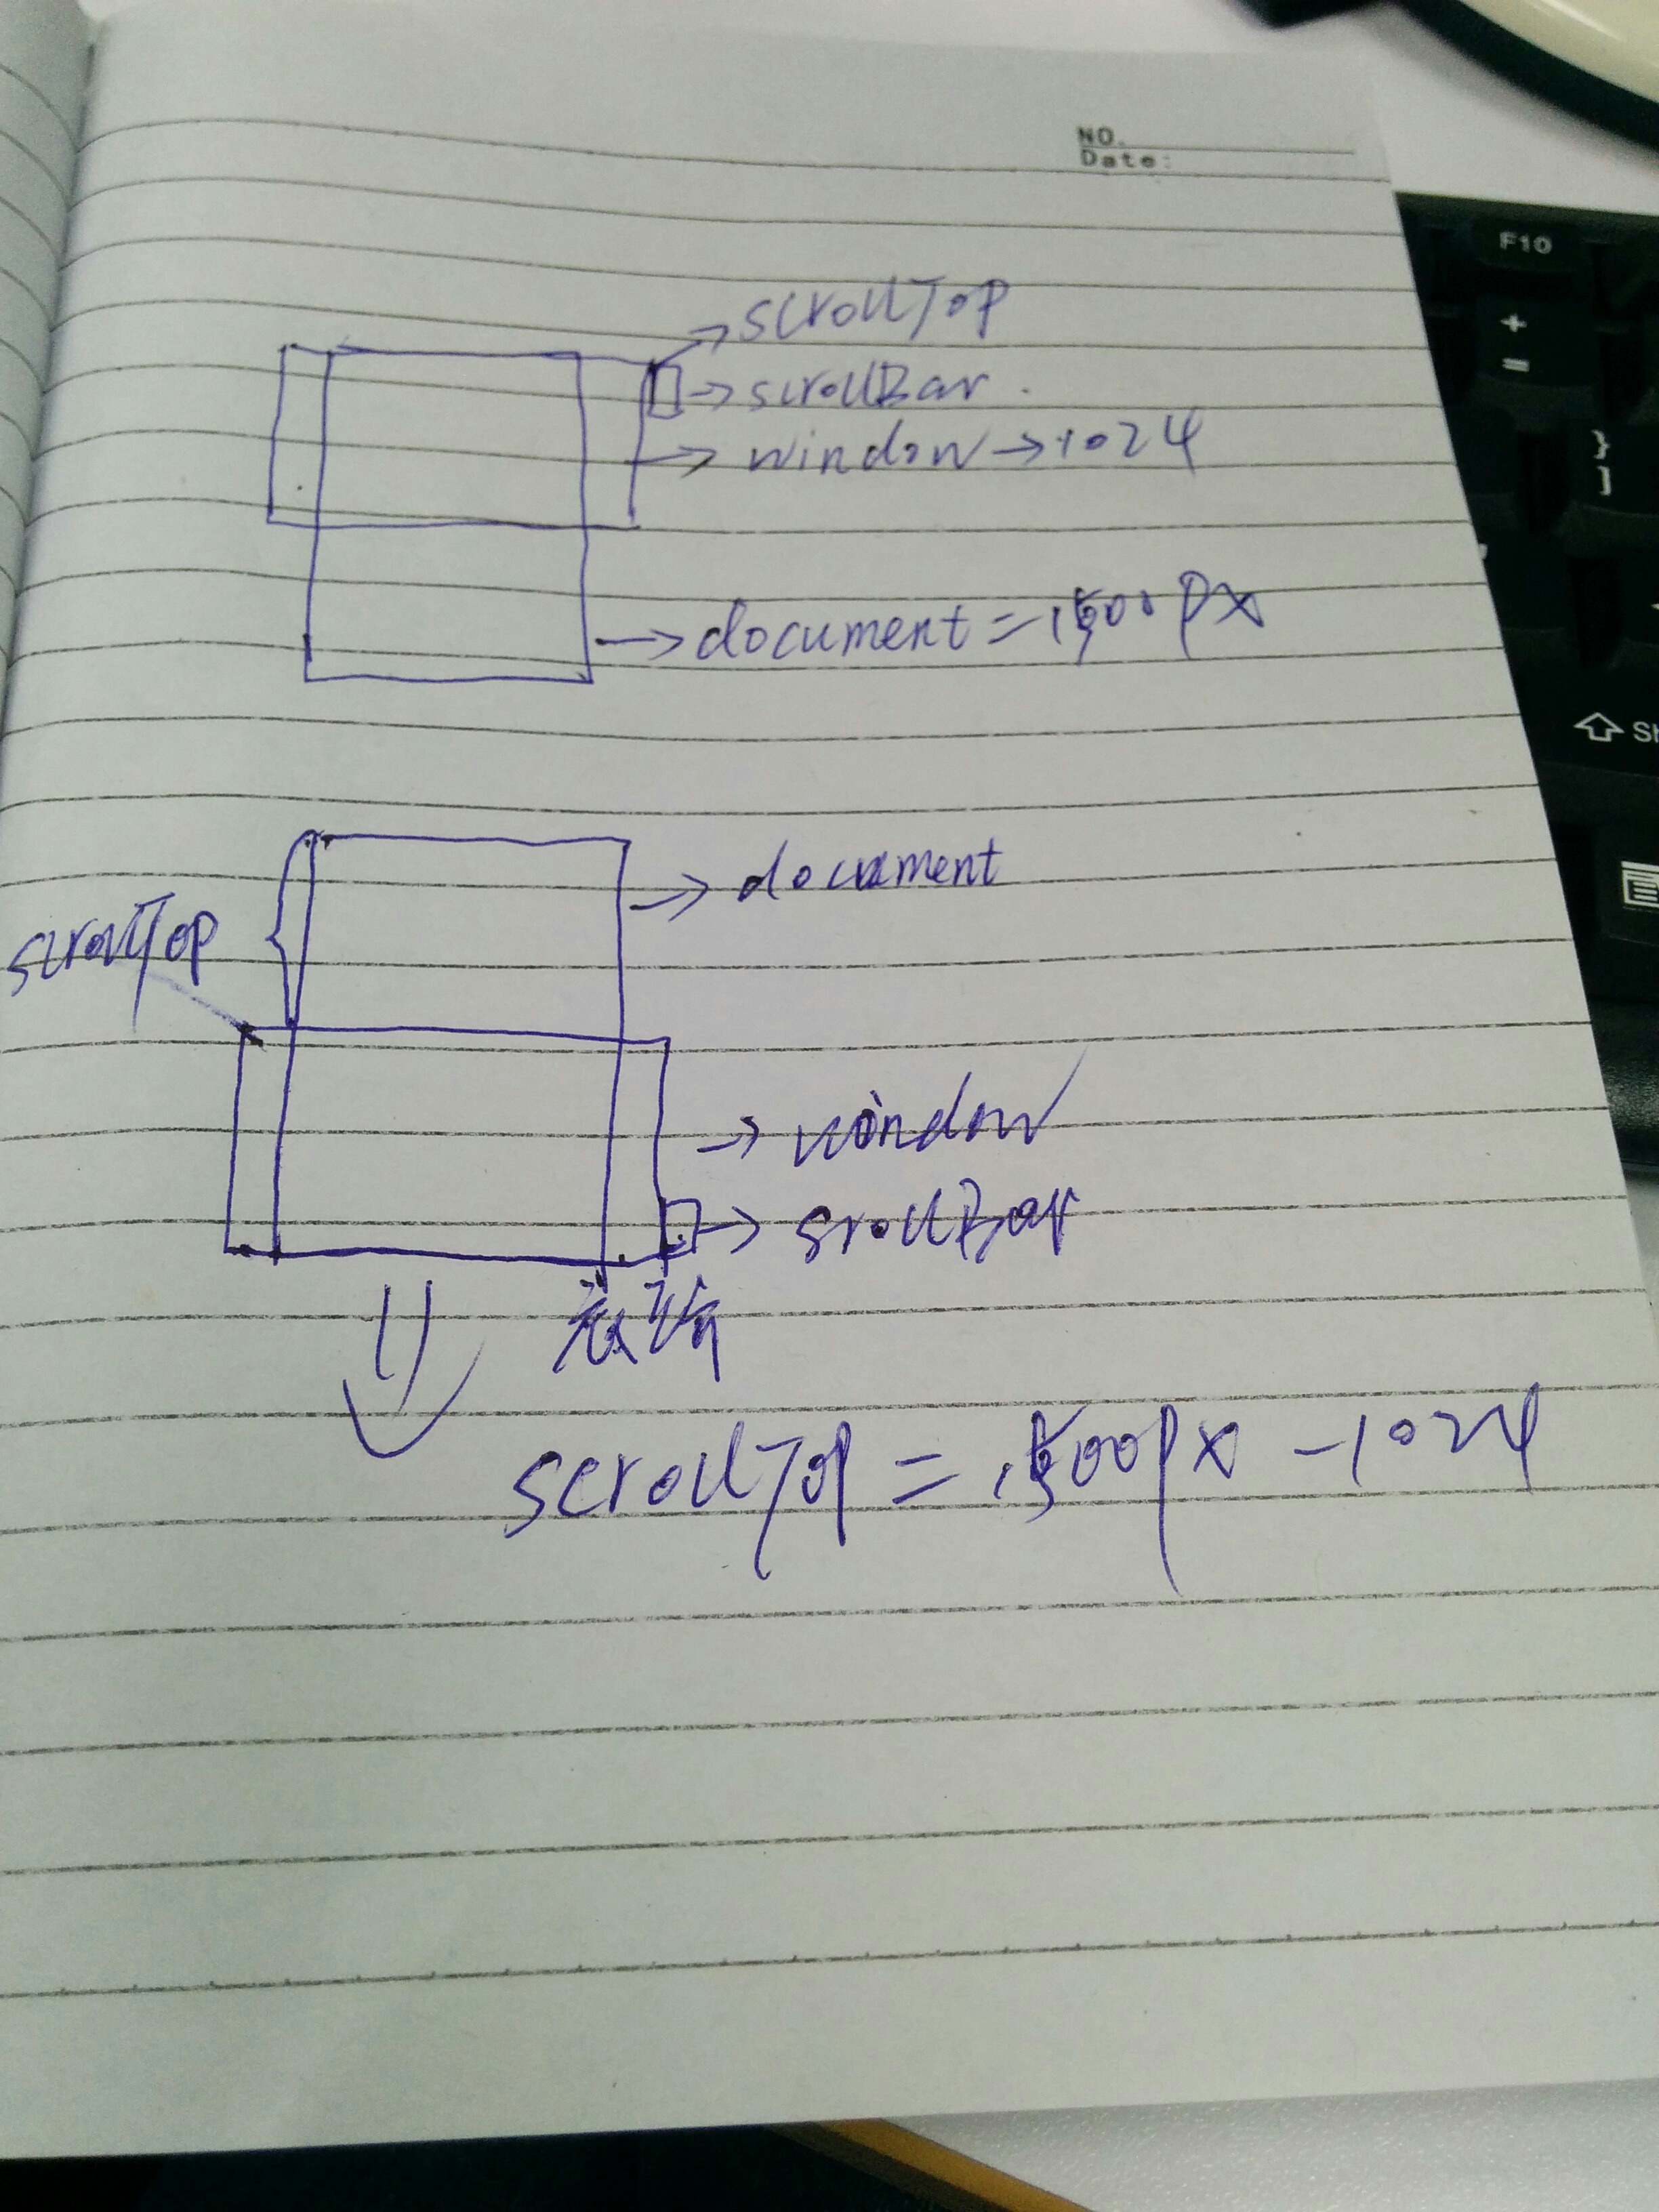 NO.
Date:
F10
+
=
}
]
scrollTop
scrollBar.
window → 1024
document = 1500px
document
scrollTop
window
srollBar
scrollTop = 1500px - 1024